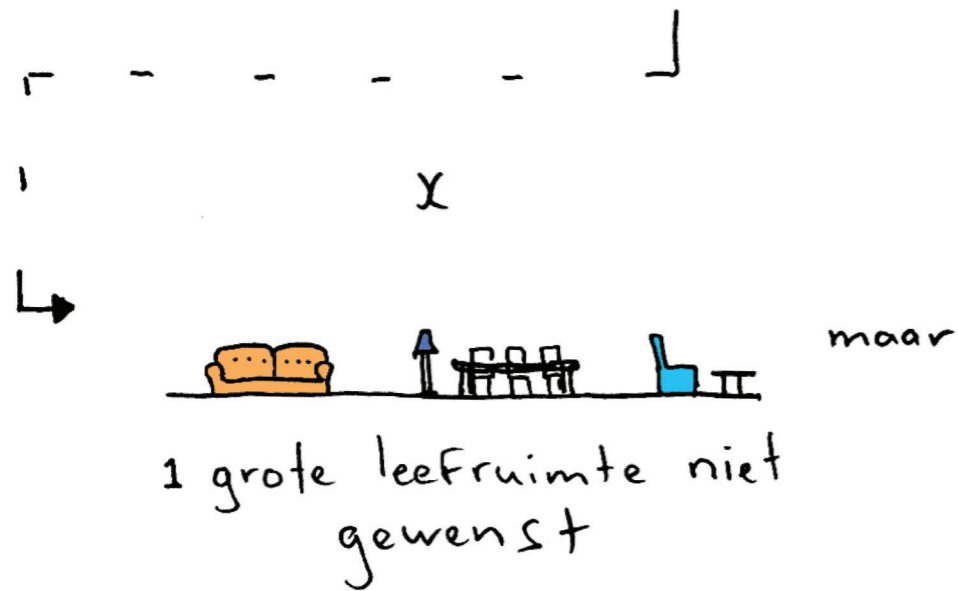 x
maar
1 grote leefruimte niet
gewenst